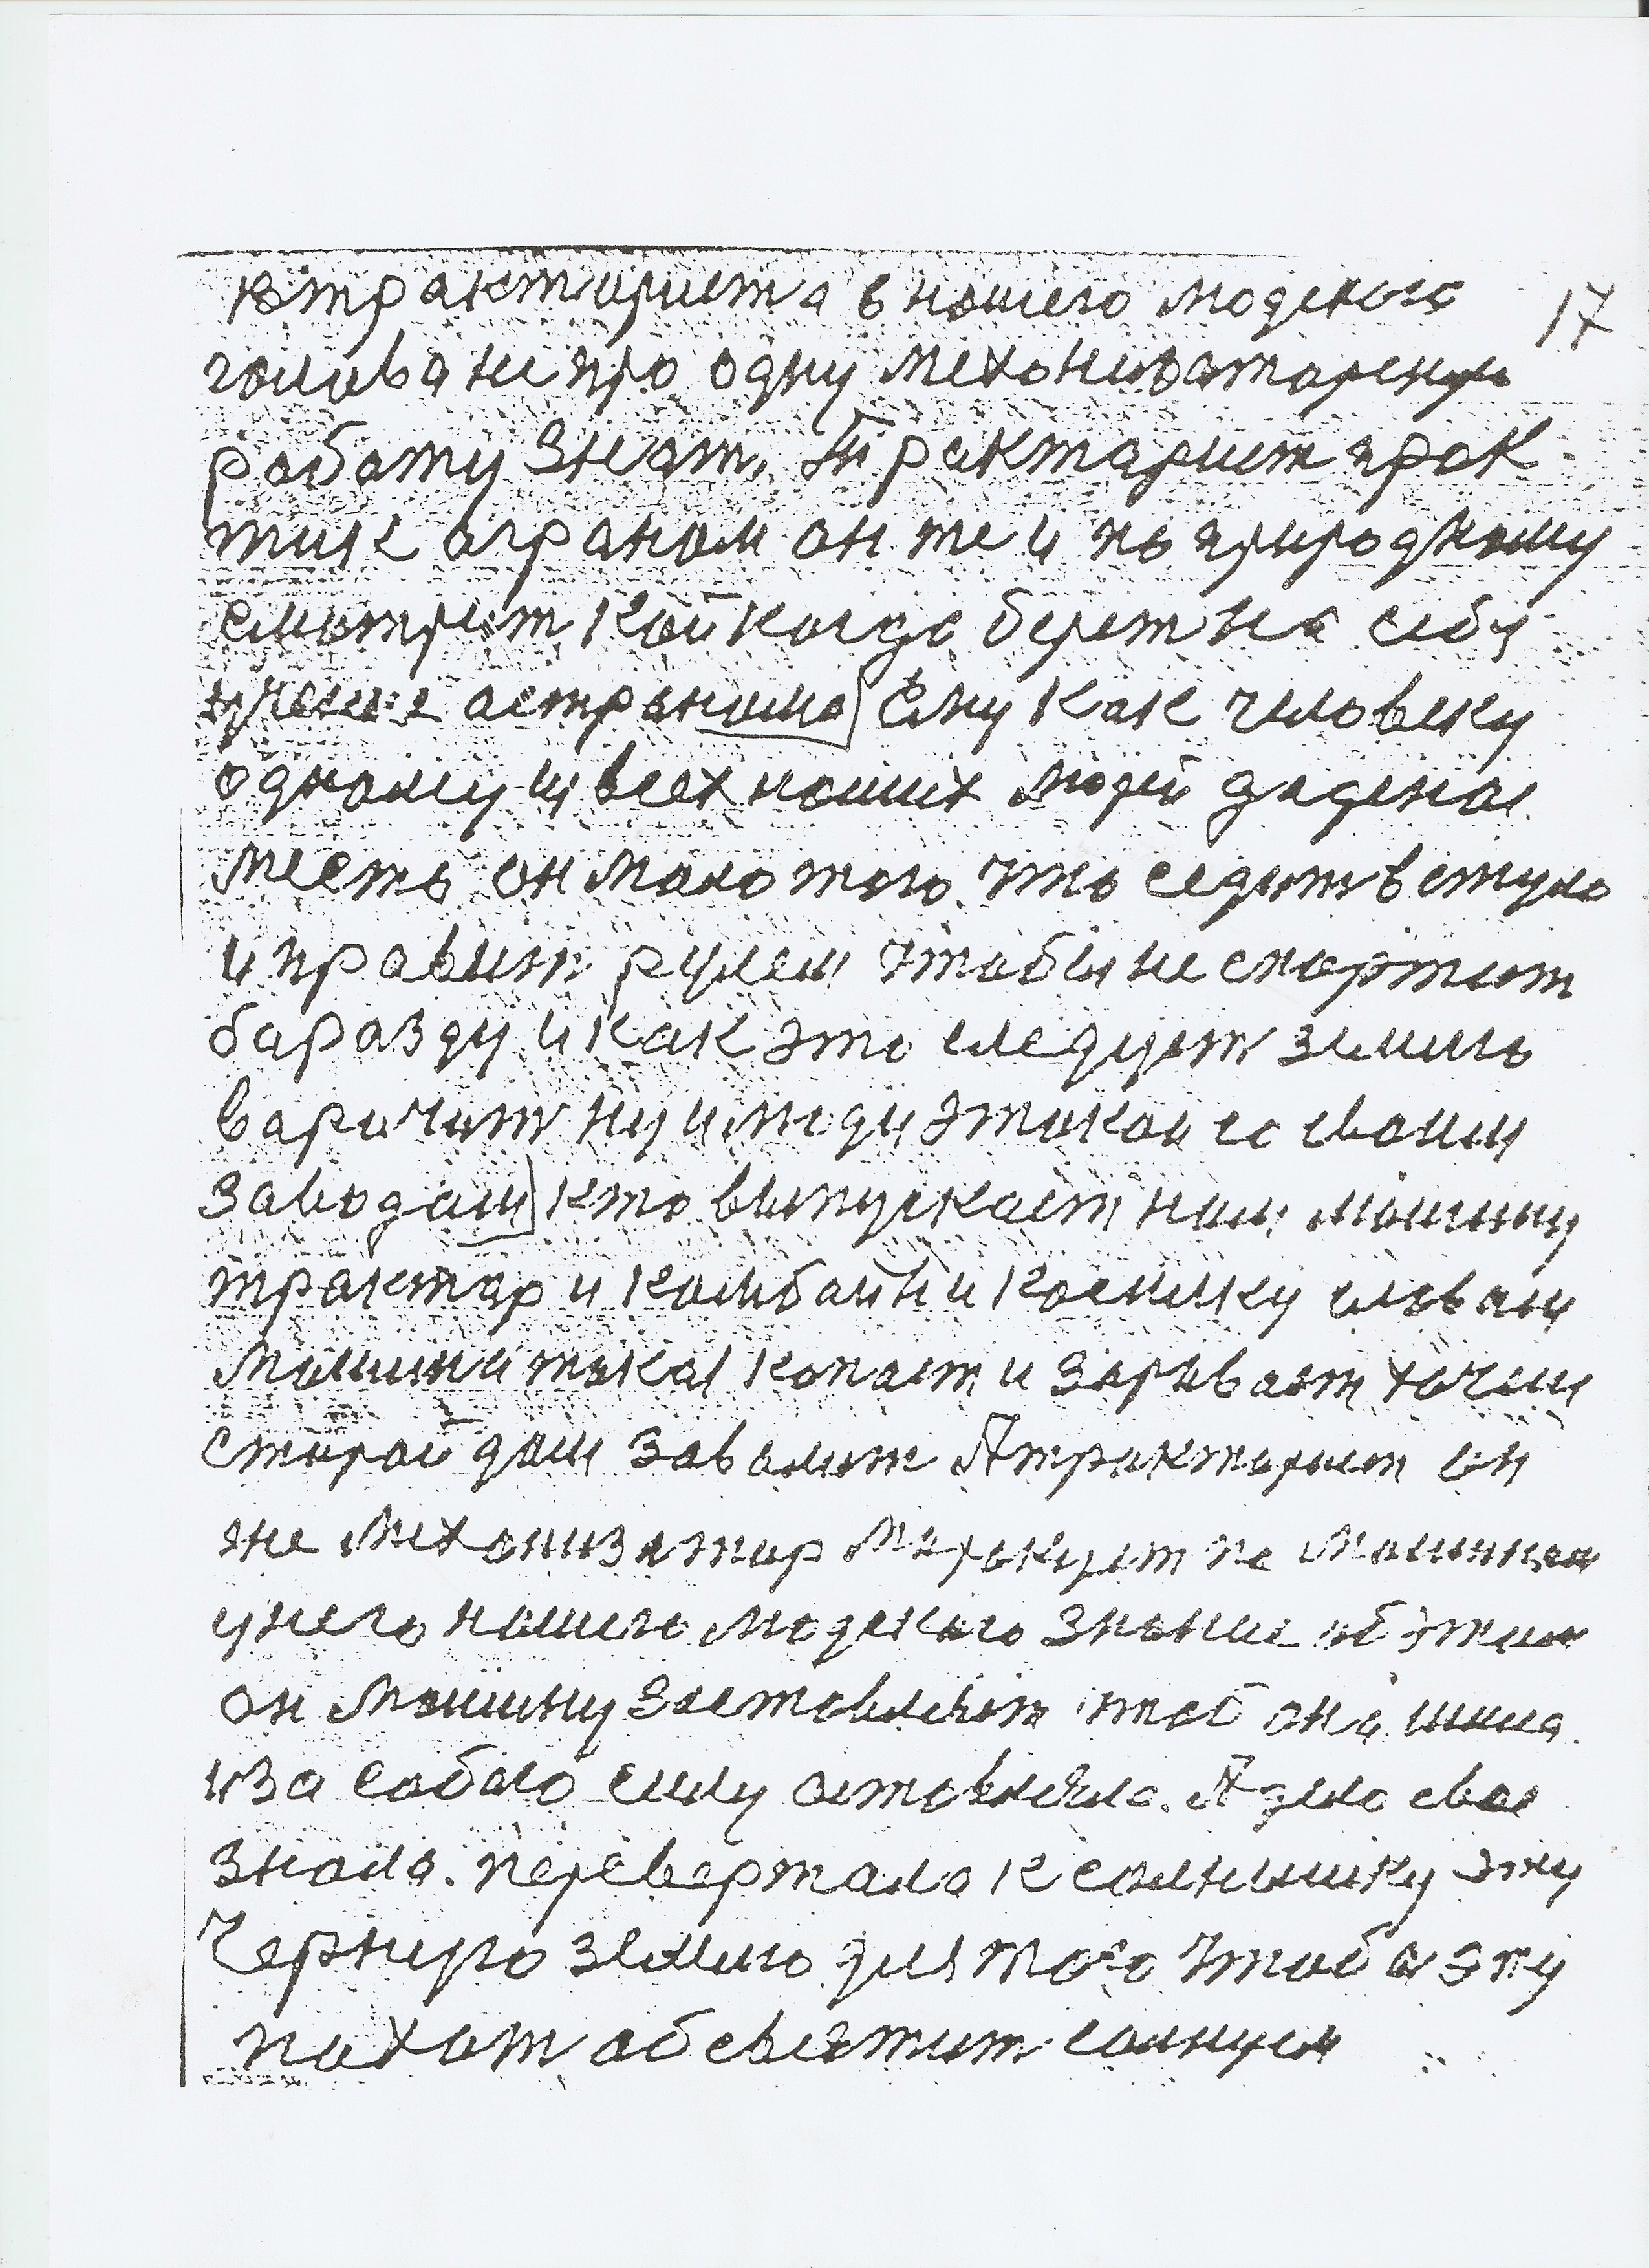 17
втрактириста в нашего людского
голова не про одну механизатарскую
работу знает. Трактарист прок
тик аграном он те и по природному
смотрит кой когда берет на себя
учение астранома Ему как человеку
одному из всех наших людей даденая
месть он мало того что седит в стуло
и правит рулем чтобы не спортит
баразду и как это следует землю
варочит ну и люди этикои со своим
заводам кто выпускает нам машину
трактар и комбайн и косилку
машина такая копает и зарывает
старой дом завалит А трактарист он
же механизатар по
у него нашего людского знание об этим
он машину заставляет штоб она шила
из а собаю силу оставляла. А дело свое
знала. перевертала к солнышку эту
Чернию землю для того чтоб а эту
пахот абсвятит солнцем